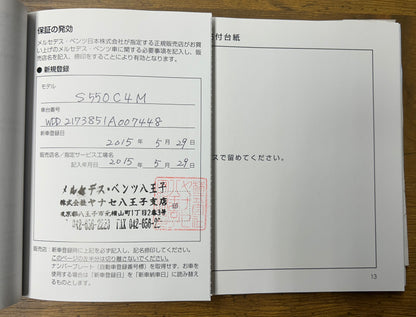 保証の発効
メルセデス・ベンツ日本株式会社が指定する正規販売店がお買
い上げのメルセデス・ベンツ車に関する必要事項を記入し、販
売店名を記入、捺印をすることにより有効となります。
● 新規登録
モデル
S550C4M
車台番号
WDD2173851A007448
新車登録日
2015 年 5 月 29 日
販売店名／指定サービス工場名
記入年月日 2015 年 5 月 29 日
メルセデス・ベンツ八王子
株式会社ヤナセ八王子支店
東京都八王子市元横山町1丁目2番3号
販売店：新車登録時に上記を必ず記入し、記名捺印してください。
このページの左半分は切り離さないでください。
ナンバープレート（自動車登録番号標）を取得せず、お車を
使用する場合は「新車登録日」を「新車納車日」に読み替え
るものとします。
付台紙
スで留めてください。
13